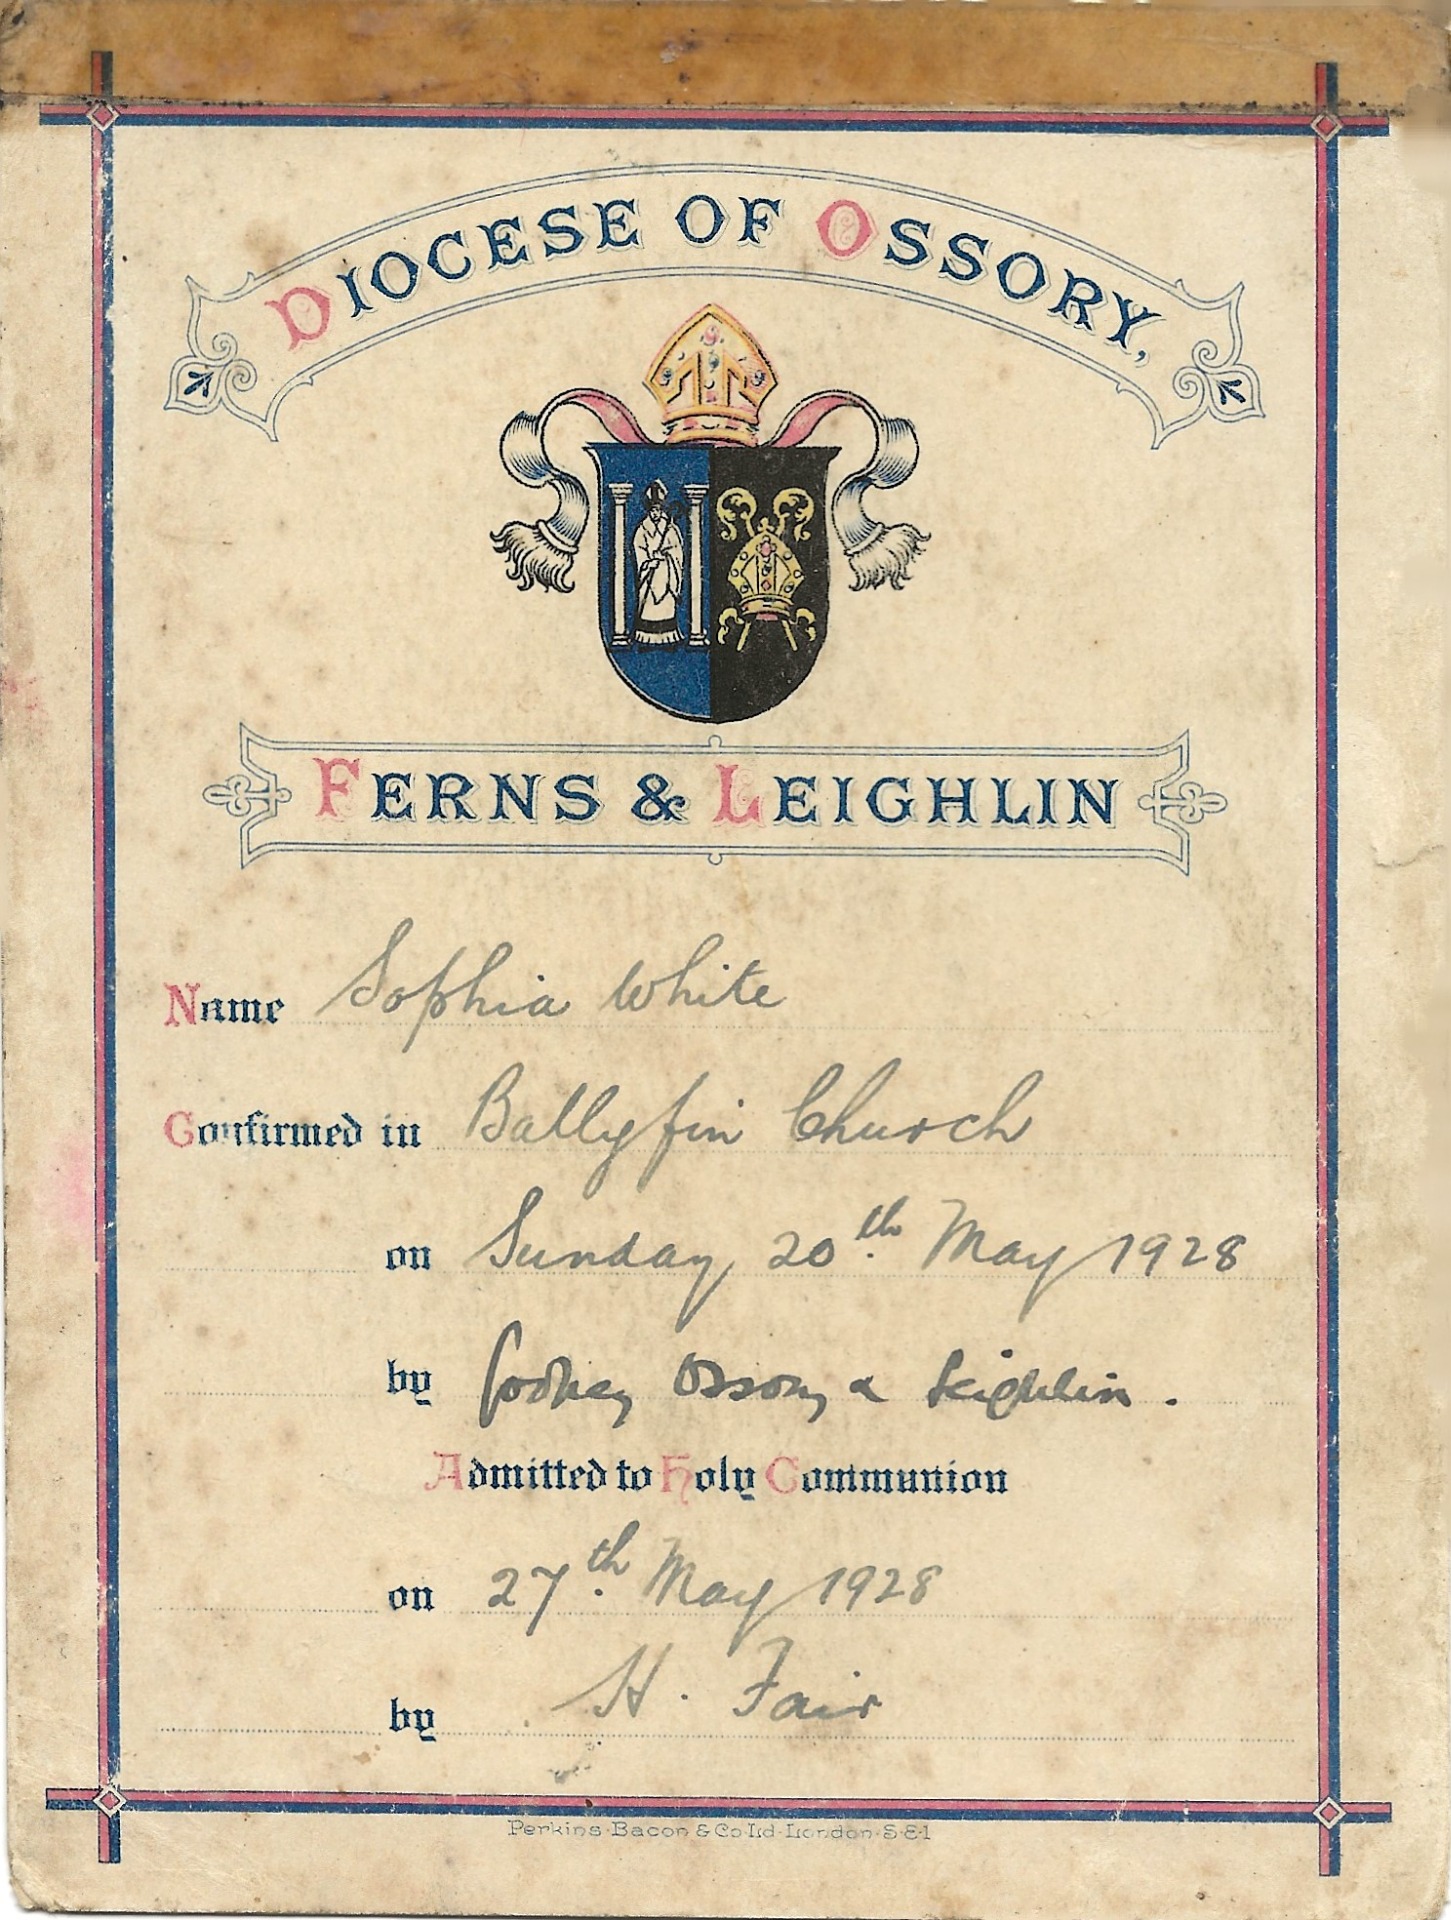 DIOCESE OF OSSORY,
FERNS & LEIGHLIN
Name Sophia White
Confirmed in Ballyfin Church
on Sunday, 20th May 1928
by Godfrey Ossory & Leighlin.
Admitted to Holy Communion
on 27th May 1928
by H. Fair
Perkins·Bacon & Co Ld·London·S·E·1